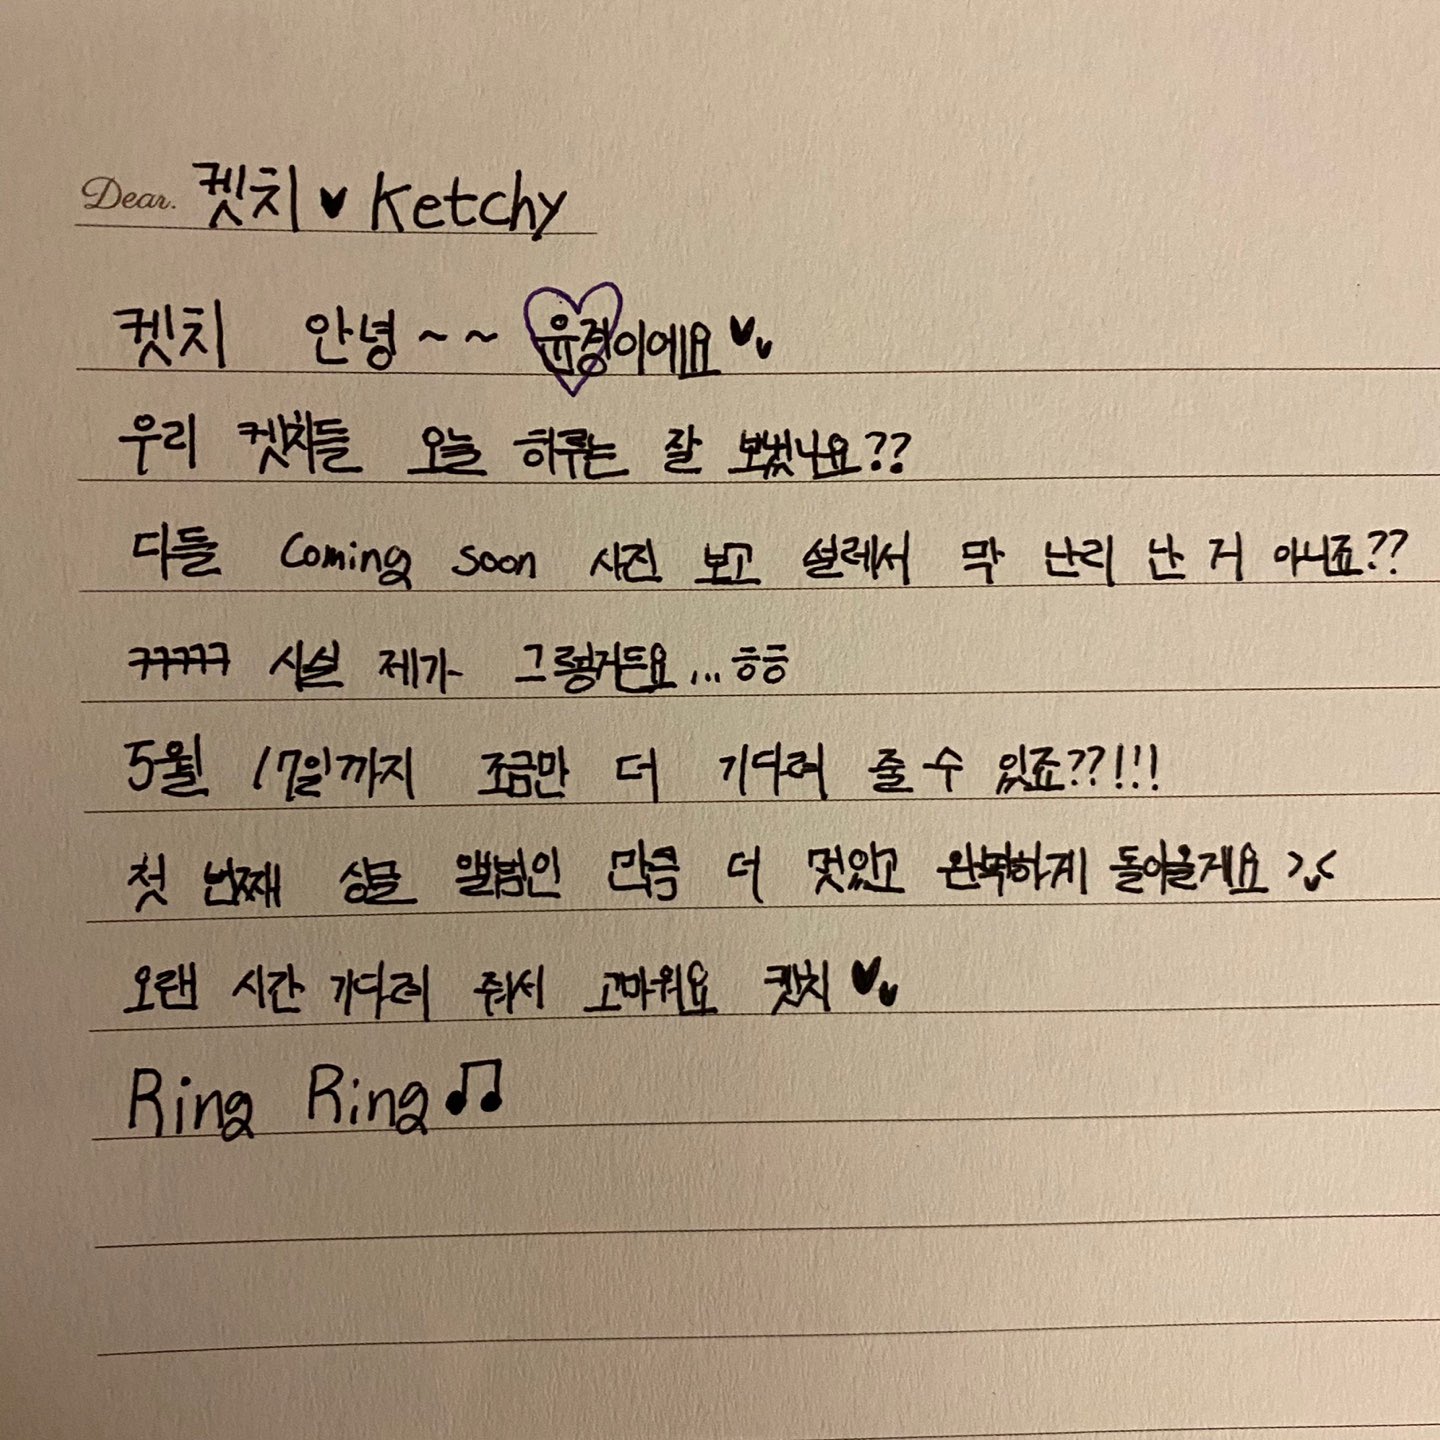 Dear. 켓치 ♥ Ketchy
켓치 안녕~~ 유경이에요 ♥♥
우리 켓치들 오늘 하루는 잘 보냈나요??
다들 Coming soon 사진 보고 설레서 막 난리 난 거 아니죠??
ㅋㅋㅋㅋㅋ 사실 제가 그렇거든요... ㅎㅎ
5월 17일까지 조금만 더 기다려 줄 수 있죠??!!!
첫 번째 싱글 앨범인 만큼 더 멋있고 완벽하게 돌아올게요 >.<
오랜 시간 기다려 줘서 고마워요 켓치 ♥♥
Ring Ring♫